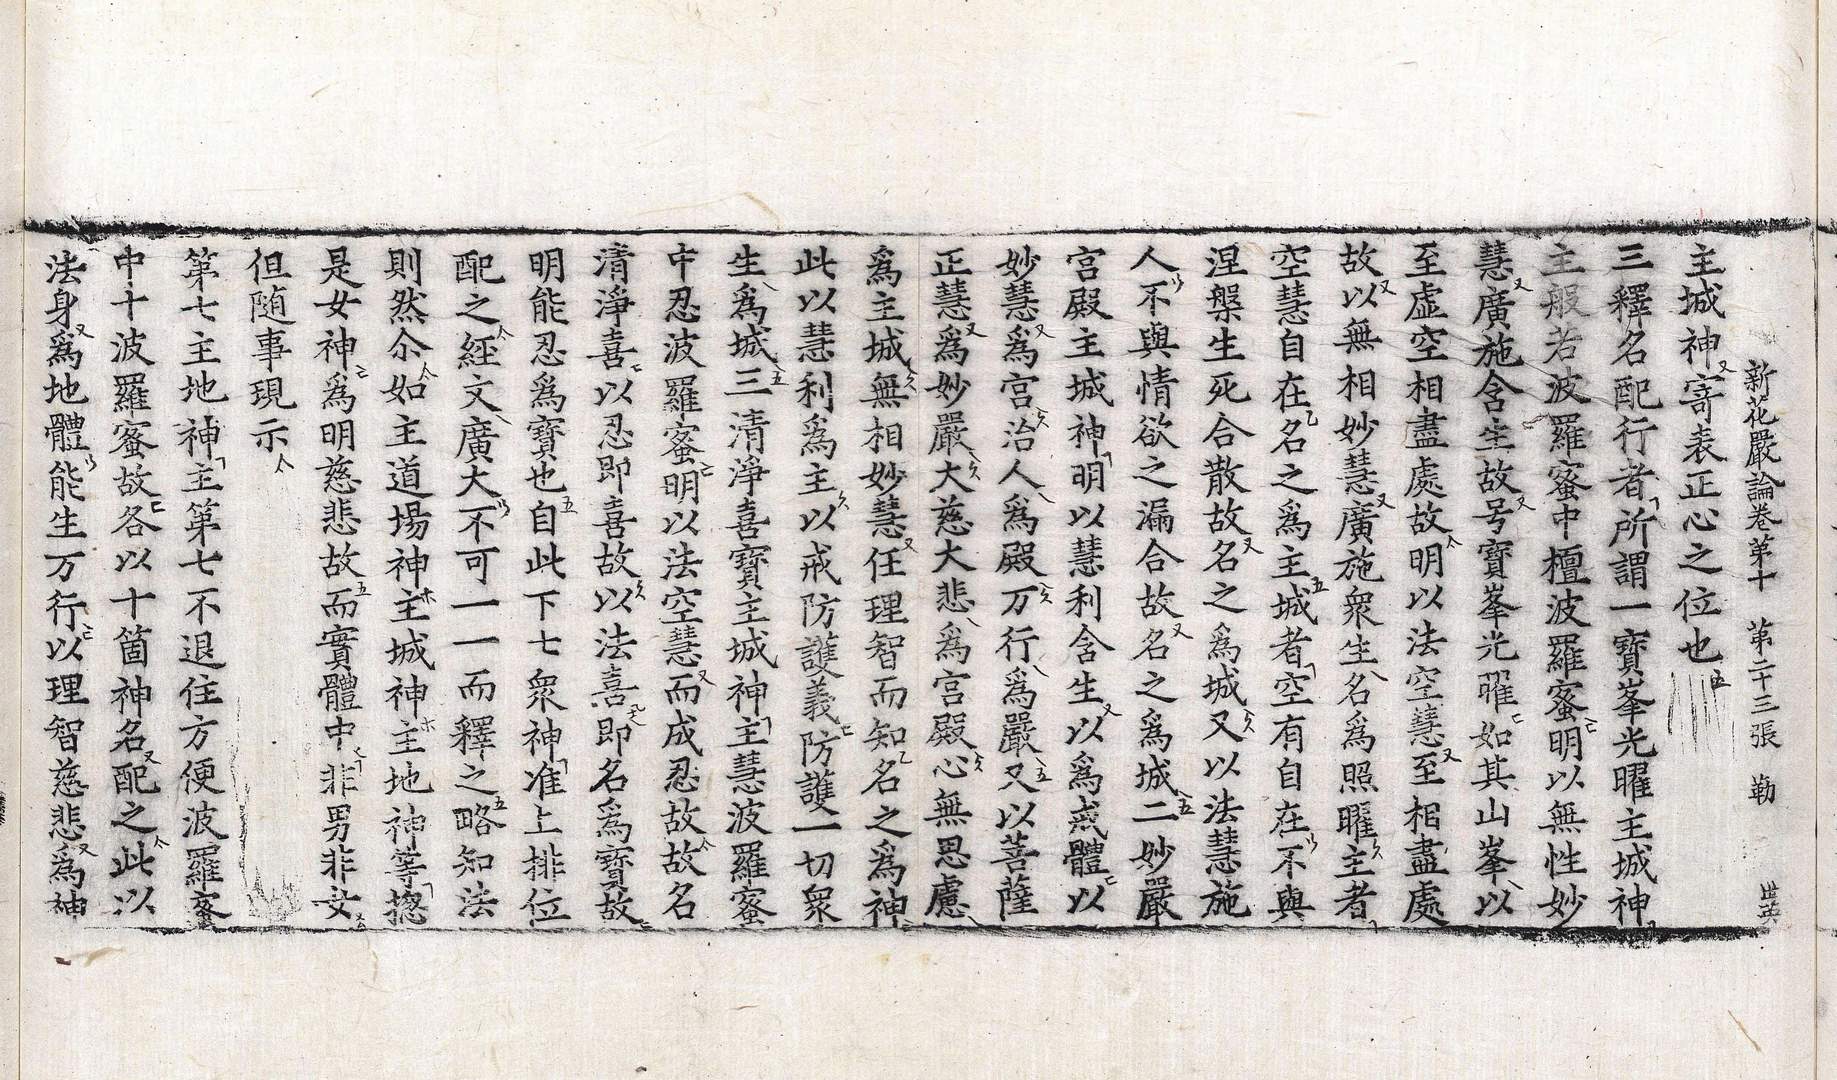 新花嚴論卷第十　第二十三張　勒　世英
主城神寄表正心之位也
三釋名配行者所謂一寶峯光曜主城神
主般若波羅蜜中檀波羅蜜明以無性妙
慧廣施含生故号寶峯光曜如其山峯以
至虛空相盡處故明以法空慧至相盡處
故以無相妙慧廣施衆生名爲照曜主者
空慧自在名之爲主城者空有自在不與
涅槃生死合散故名之爲城又以法慧施
人不與情欲之漏合故名之爲城二妙嚴
宮殿主城神明以慧利含生以爲戒體以
妙慧爲宮治人爲殿万行爲嚴又以菩薩
正慧爲妙嚴大慈大悲爲宮殿心無思慮
爲主城無相妙慧任理智而知名之爲神
此以慧利爲主以戒防護義防護一切衆
生爲城三清淨喜寶主城神主慧波羅蜜
中忍波羅蜜明以法空慧而成忍故故名
清淨喜以忍即喜故以法喜即名爲寶故
明能忍爲寶也自此下七衆神准上排位
配之經文廣大不可一一而釋之略知法
則然尒如主道場神主城神主地神等揔
是女神爲明慈悲故而實體中非男非女
但随事現示
第七主地神主第七不退住方便波羅蜜
中十波羅蜜故各以十箇神名配之此以
法身爲地體能生万行以理智慈悲爲神